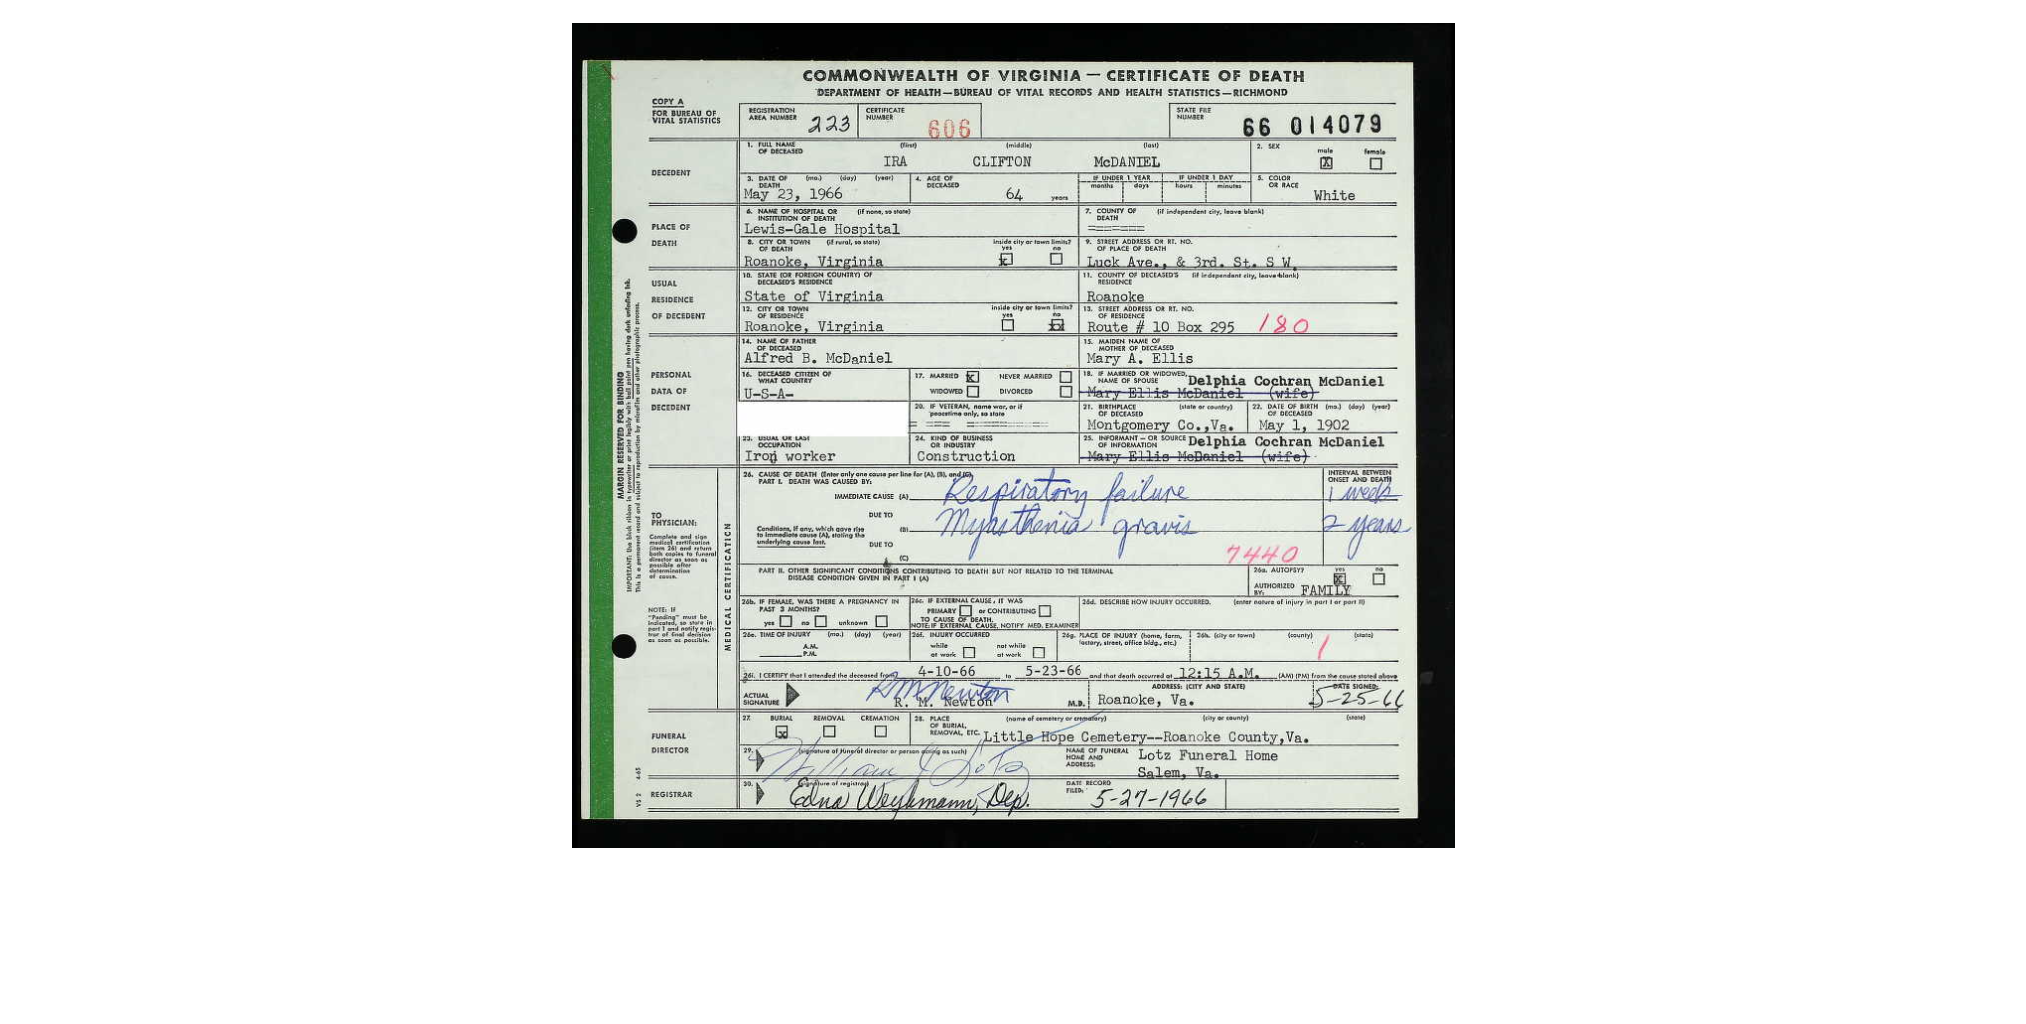 COMMONWEALTH OF VIRGINIA — CERTIFICATE OF DEATH
DEPARTMENT OF HEALTH—BUREAU OF VITAL RECORDS AND HEALTH STATISTICS—RICHMOND
COPY A
FOR BUREAU OF
VITAL STATISTICS
REGISTRATION
AREA NUMBER 223
CERTIFICATE
NUMBER 606
STATE FILE
NUMBER 66 014079
DECEDENT
1. FULL NAME OF DECEASED (first) (middle) (last)
IRA CLIFTON McDANIEL
2. SEX male X female
3. DATE OF DEATH (mo.) (day) (year)
May 23, 1966
4. AGE OF DECEASED
64 years
IF UNDER 1 YEAR months days
IF UNDER 1 DAY hours minutes
5. COLOR OR RACE
White
PLACE OF
DEATH
6. NAME OF HOSPITAL OR INSTITUTION OF DEATH (if none, so state)
Lewis-Gale Hospital
7. COUNTY OF DEATH (if independent city, leave blank)
=======
8. CITY OR TOWN OF DEATH (if rural, so state)
inside city or town limits? yes no
Roanoke, Virginia x
9. STREET ADDRESS OR RT. NO. OF PLACE OF DEATH
Luck Ave., & 3rd. St. S W.
USUAL
RESIDENCE
OF DECEDENT
10. STATE (OR FOREIGN COUNTRY) OF DECEASED'S RESIDENCE
State of Virginia
11. COUNTY OF DECEASED'S RESIDENCE (if independent city, leave blank)
Roanoke
12. CITY OR TOWN OF RESIDENCE
inside city or town limits? yes no
Roanoke, Virginia xx
13. STREET ADDRESS OR RT. NO. OF RESIDENCE
Route # 10 Box 295 180
PERSONAL
DATA OF
DECEDENT
14. NAME OF FATHER OF DECEASED
Alfred B. McDaniel
15. MAIDEN NAME OF MOTHER OF DECEASED
Mary A. Ellis
16. DECEASED CITIZEN OF WHAT COUNTRY
U-S-A-
17. MARRIED X NEVER MARRIED
WIDOWED DIVORCED
18. IF MARRIED OR WIDOWED, NAME OF SPOUSE Delphia Cochran McDaniel
Mary Ellis McDaniel (wife)
20. IF VETERAN, name war, or if peacetime only, so state
21. BIRTHPLACE OF DECEASED (state or country)
Montgomery Co.,Va.
22. DATE OF BIRTH OF DECEASED (mo.) (day) (year)
May 1, 1902
23. USUAL OR LAST OCCUPATION
Iron worker
24. KIND OF BUSINESS OR INDUSTRY
Construction
25. INFORMANT — OR SOURCE OF INFORMATION Delphia Cochran McDaniel
Mary Ellis McDaniel (wife)
MARGIN RESERVED FOR BINDING
TO
PHYSICIAN:
Complete and sign
medical certification
(item 26) and return
both copies to funeral
director as soon as
possible after
determination
of cause.
NOTE: IF
"Pending" must be
indicated, so state in
part I and notify regis-
trar of final decision
as soon as possible.
MEDICAL CERTIFICATION
26. CAUSE OF DEATH (Enter only one cause per line for (A), (B), and (C))
PART I. DEATH WAS CAUSED BY:
INTERVAL BETWEEN ONSET AND DEATH
IMMEDIATE CAUSE (A) Respiratory failure 1 week
DUE TO
(B) Myasthenia gravis 2 years
Conditions, if any, which gave rise
to immediate cause (A), stating the
underlying cause last.
DUE TO
(C)
7440
PART II. OTHER SIGNIFICANT CONDITIONS CONTRIBUTING TO DEATH BUT NOT RELATED TO THE TERMINAL
DISEASE CONDITION GIVEN IN PART I (A)
26a. AUTOPSY? yes X no
AUTHORIZED BY: FAMILY
26b. IF FEMALE, WAS THERE A PREGNANCY IN PAST 3 MONTHS?
yes no unknown
26c. IF EXTERNAL CAUSE, IT WAS
PRIMARY or CONTRIBUTING
TO CAUSE OF DEATH.
NOTE: IF EXTERNAL CAUSE, NOTIFY MED. EXAMINER
26d. DESCRIBE HOW INJURY OCCURRED. (enter nature of injury in part I or part II)
26e. TIME OF INJURY (mo.) (day) (year)
A.M.
P.M.
26f. INJURY OCCURRED
while at work not while at work
26g. PLACE OF INJURY (home, farm, factory, street, office bldg., etc.)
26h. (city or town) (county) (state)
1
26i. I CERTIFY that I attended the deceased from 4-10-66 to 5-23-66 and that death occurred at 12:15 A.M. (AM) (PM) from the cause stated above
ACTUAL
SIGNATURE
R M Newton
R. M. Newton M.D.
ADDRESS: (CITY AND STATE)
Roanoke, Va.
DATE SIGNED:
5-25-66
FUNERAL
DIRECTOR
27. BURIAL x REMOVAL CREMATION
28. PLACE OF BURIAL, REMOVAL, ETC. (name of cemetery or crematory) (city or county) (state)
Little Hope Cemetery--Roanoke County,Va.
29. (signature of funeral director or person acting as such)
William J Lotz
NAME OF FUNERAL HOME AND ADDRESS:
Lotz Funeral Home
Salem, Va.
REGISTRAR
30. (signature of registrar)
Edna Dep.
DATE RECORD FILED:
5-27-1966
VS 2 4-65